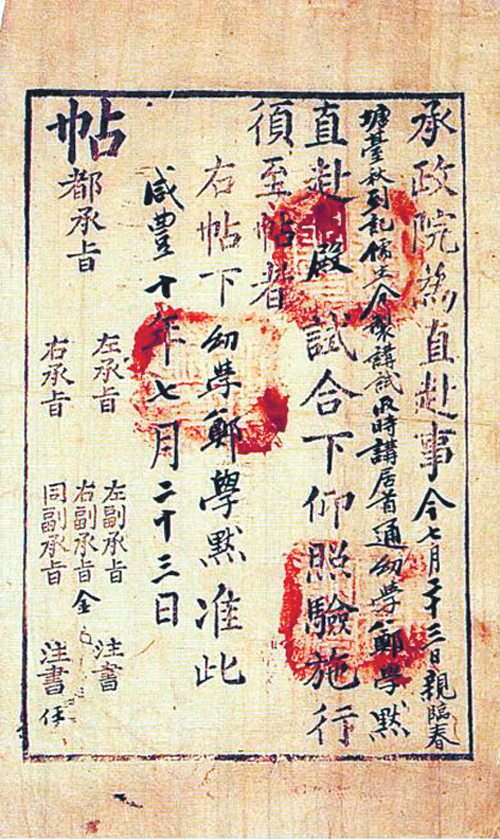 承政院爲直赴事今七月二十三日親臨春
塘臺秋到記儒生合製講試取時講居首通幼學鄭學黙
直赴殿試合下仰照驗施行
須至帖者
右帖下幼學鄭學黙准此
咸豊十年七月二十三日
帖
都承旨
左承旨
右承旨
左副承旨
右副承旨金
同副承旨
注書
注書任